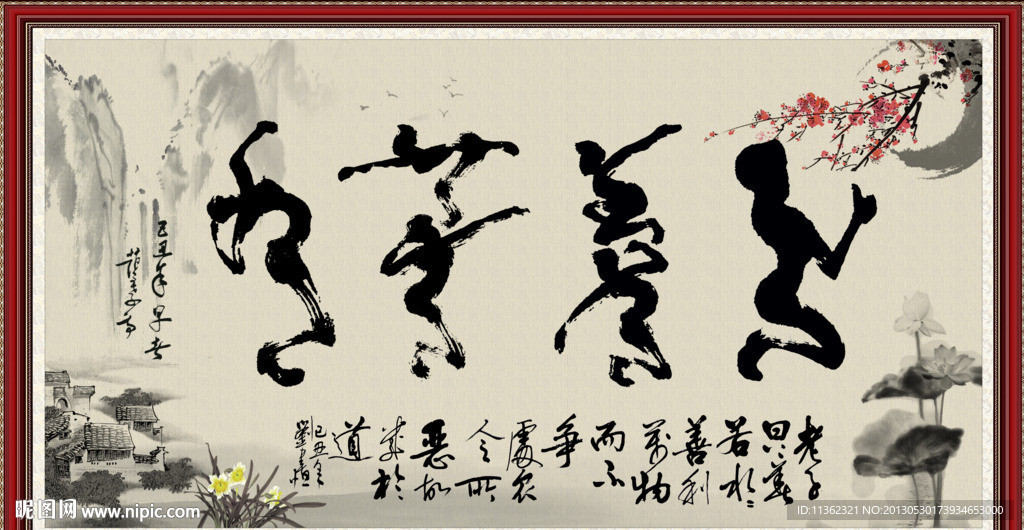 上善若水
老子
曰上善
若水水
善利
萬物
而不
争
處众
人之所
恶故
幾於
道
己丑
己丑年早春
昵图网 www.nipic.com
ID:11362321 NO:20130530173934653000